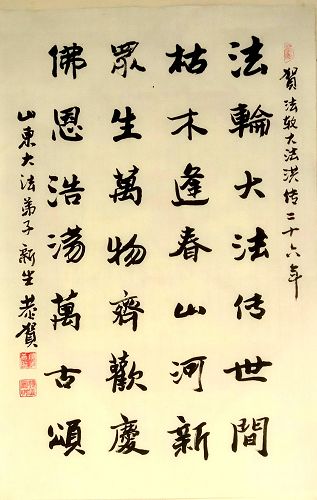 賀法轮大法洪传二十六年
法輪大法传世間
枯木逢春山河新
眾生萬物齊歡慶
佛恩浩蕩萬古頌
山東大法弟子新生恭賀